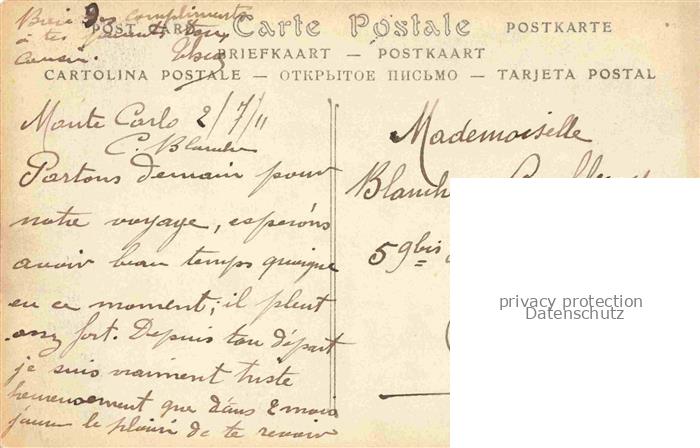 Bien des compliments
à tes parents. Ton
cousin.
POST CARTE Carte Postale POSTKARTE
BRIEFKAART — POSTKAART
CARTOLINA POSTALE — ОТКРЫТОЕ ПИСЬМО — TARJETA POSTAL
Monte Carlo 2/7/11
C. Blanche
Partons demain pour
notre voyage, espérons
avoir beau temps quoique
en ce moment, il pleut
assez fort. Depuis ton départ
je suis vraiment triste
heureusement que dans 2 mois
j'aurai le plaisir de te revoir
Mademoiselle
Blanche
59bis
privacy protection
Datenschutz